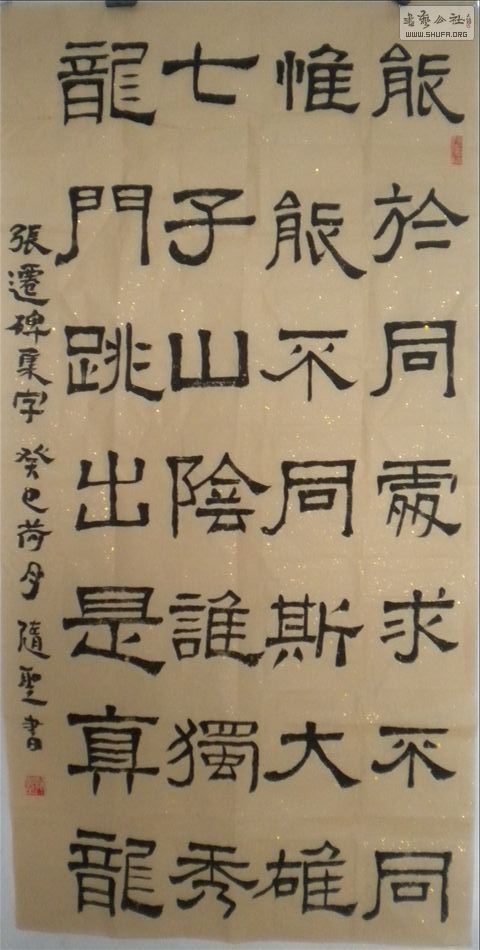 能於同處求不同
惟能不同斯大雄
七子山陰誰獨秀
龍門跳出是真龍
張遷碑集字 癸巳荷月 隨聖書
書藝公社
WWW.SHUFA.ORG